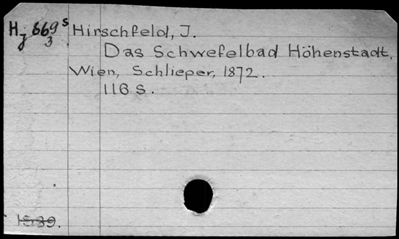 Hirschfeld, J.
Das Schwefelbad Höhenstadt,
Wien, Schlieper, 1872.
116 S.